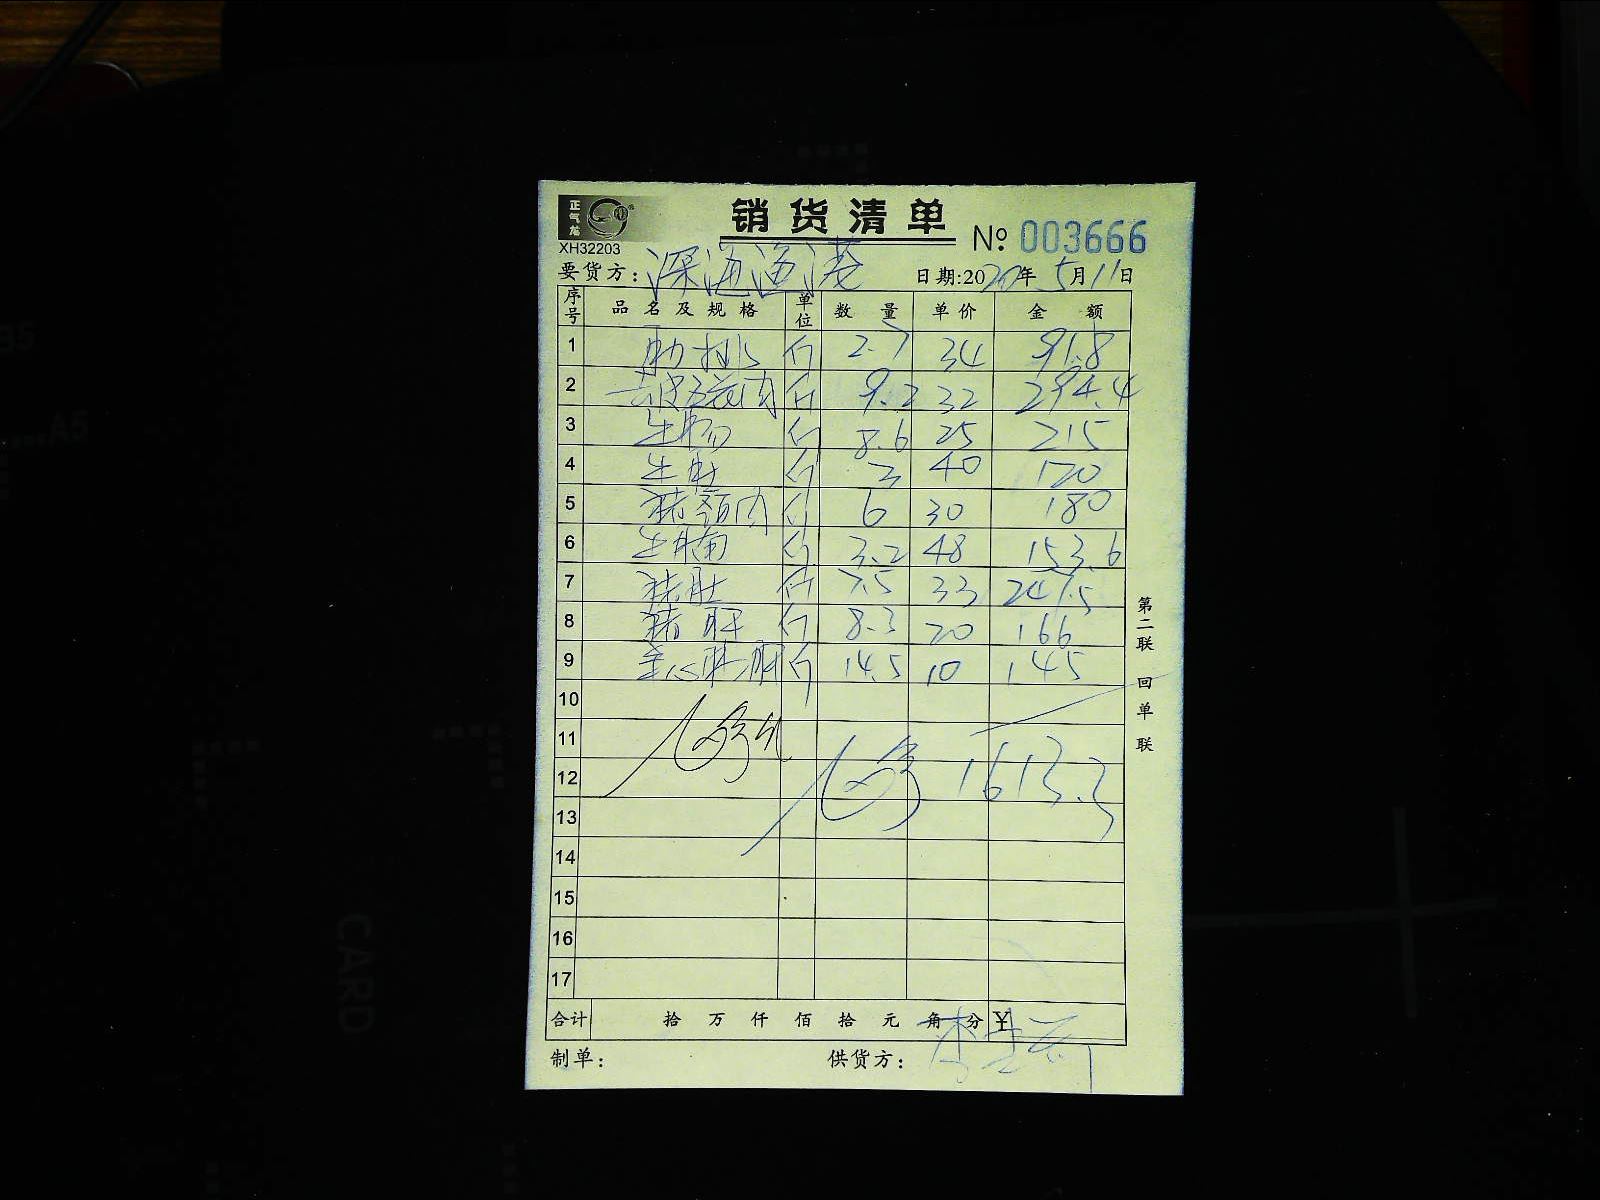 正气龙
XH32203
销货清单
№ 003666
要货方：深海渔港 日期:2020年5月11日
序号 品名及规格 单位 数量 单价 金额
1 肋排 斤 2.7 34 91.8
2 去皮五花肉 斤 9.2 32 294.4
3 牛 斤 8.6 25 215
4 牛肚 斤 3 40 120
5 猪颈肉 斤 6 30 180
6 牛腩 斤 3.2 48 153.6
7 猪肚 斤 7.5 33 247.5
8 猪肝 斤 8.3 20 166
9 斤 14.5 10 145
10
11
12 1613.3
13
14
15
16
17
合计 拾万仟佰拾元角分 ￥
制单： 供货方：李
第二联 回单联
CARD
A5